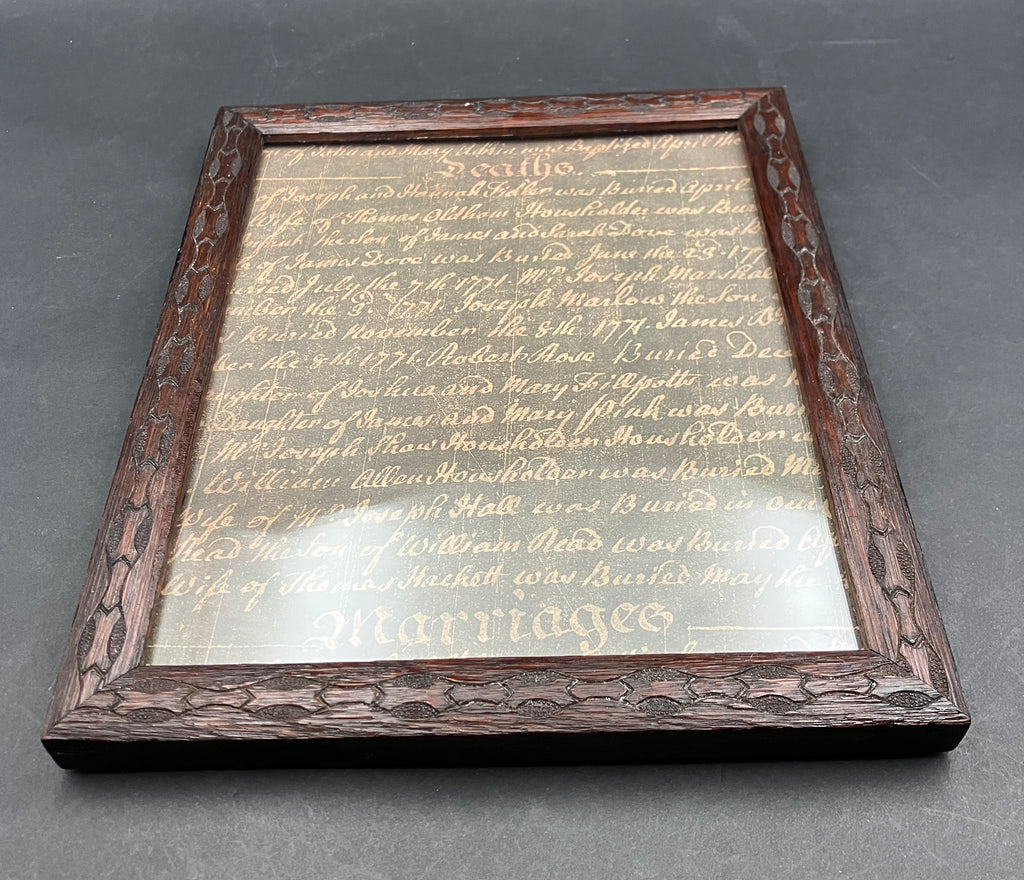 of John and Mary was Baptized April the
Deaths.
of Joseph and Hannah Fidler was Buried April
Wife of Thomas Oldham Housholder was Bur
the Son of James and Sarah Dove was
of James Dove was Buried June the 23d 177
July the 7th 1771. Mr. Joseph Marshal
the 3d. 1771. Joseph Marlow the Son
Buried November the 8th 1771. James B
the 8th 1771. Robert Rose Buried Dec
of Joshua and Mary Fillpotts was
Daughter of James and Mary Pink was Buri
Mr. Joseph Shaw Housholder Housholder
William Allen Housholder was Buried Ma
Wife of Mr. Joseph Hall was Buried in our
Read The Son of William Read was Buried Ap
Wife of Thomas Hackett was Buried May the
Marriages